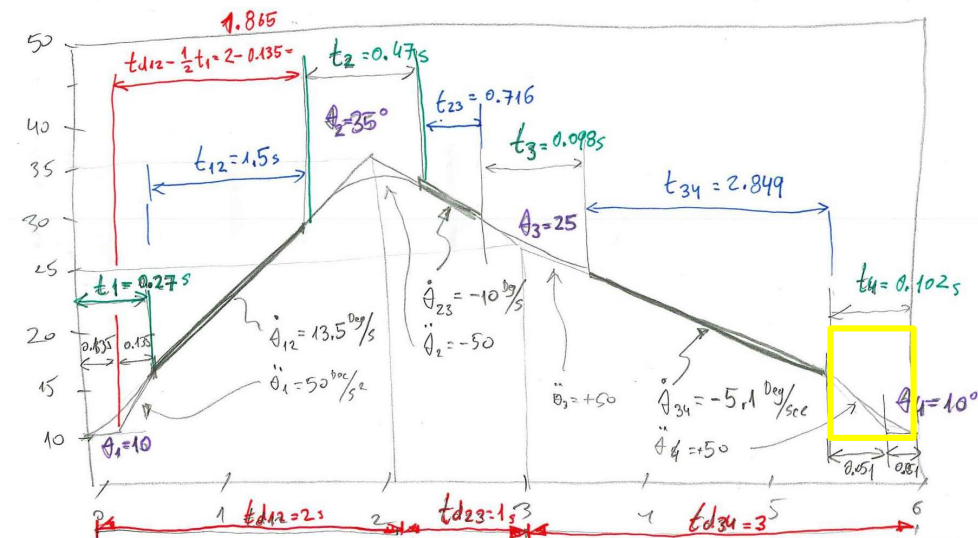 1.865
50
td12 - ½t1 = 2 - 0.135 =
t2 = 0.47s
t23 = 0.716
θ2 = 35°
40
t3 = 0.098s
35
t12 = 1.5s
t34 = 2.849
30
θ3 = 25
25
t1 = 0.27s
t4 = 0.102s
θ̇23 = -10 Deg/s
20
0.135
0.135
θ̇12 = 13.5 Deg/s
θ̈2 = -50
θ̈1 = 50 Dec/s²
θ̈3 = +50
θ̇34 = -5,1 Deg/sec
θ4 = 10°
15
10
θ1 = 10
θ̈4 = +50
0.051
0.051
0
1
2
3
4
5
6
td12 = 2s
td23 = 1s
td34 = 3